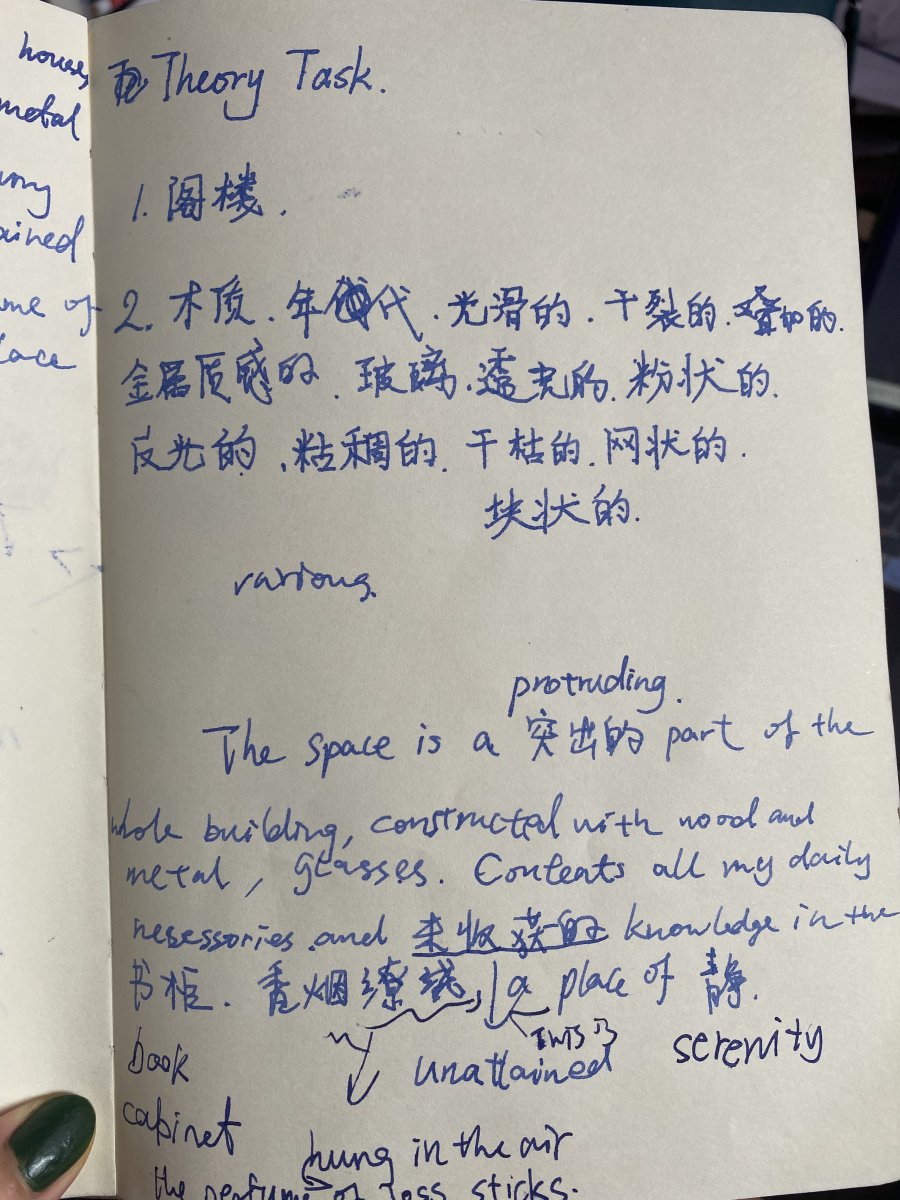 houses
metal
ained
me of
lace
Theory Task.
1. 阁楼.
2. 木质. 年代. 光滑的. 干裂的. 叠加的.
金属质感的. 玻璃. 透光的. 粉状的.
反光的. 粘稠的. 干枯的. 网状的.
块状的.
various.
protruding.
The space is a 突出的 part of the
whole building, constructed with wood and
metal, glasses. Contents all my daily
nesessories and 未收获的 knowledge in the
书柜. 香烟缭绕, a place of 静.
book
unattained
serenity
cabinet
hung in the air
the perfume of joss sticks.